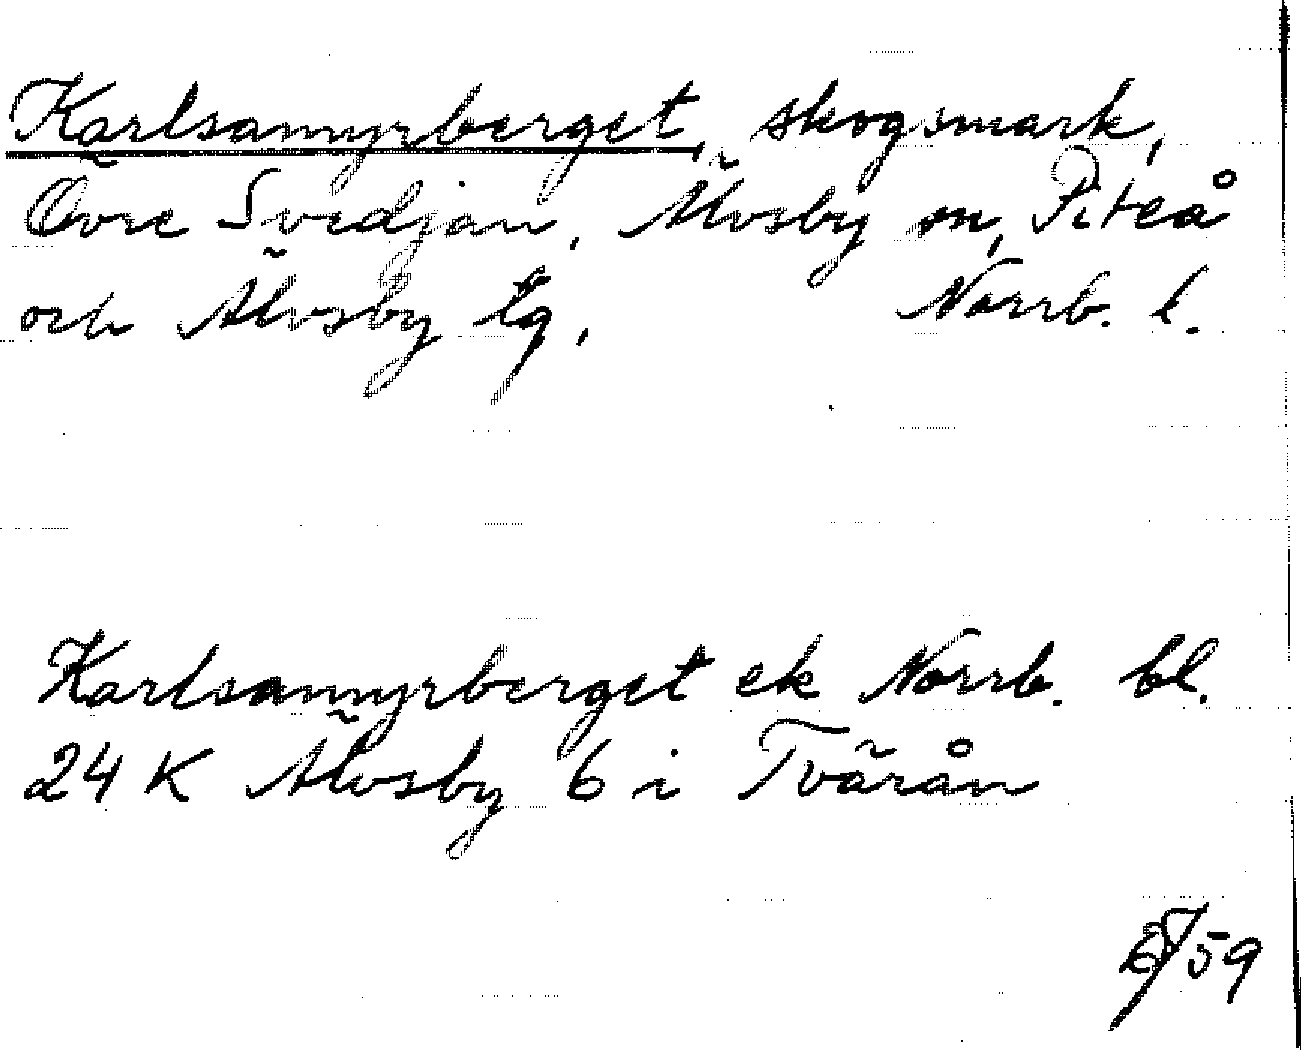 Karlsamyrberget, skogsmark,
Övre Svedjan, Älvsby sn, Piteå
och Älvsby tg. Norrb. l.
Karlsamyrberget ek Norrb. bl.
24 K Älvsby 6 i Tvärån
59